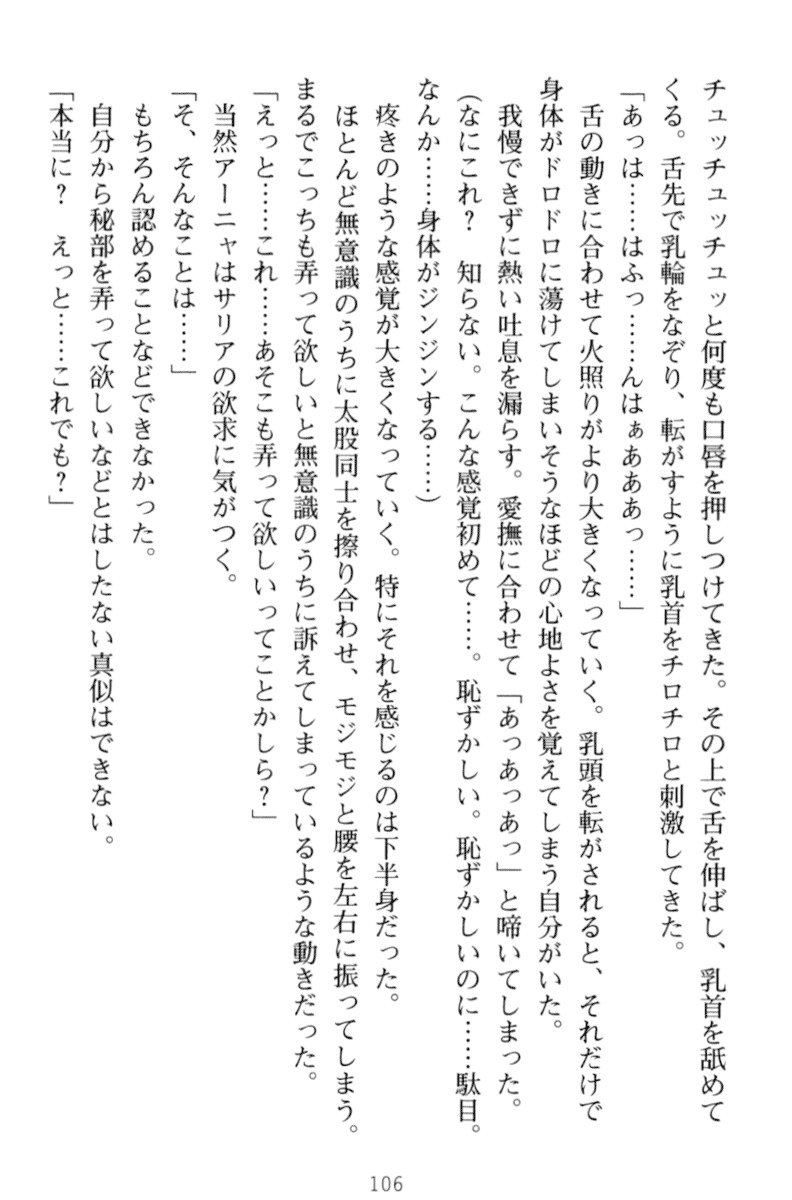 チュッチュッチュッと何度も口唇を押しつけてきた。その上で舌を伸ばし、乳首を舐めて
くる。舌先で乳輪をなぞり、転がすように乳首をチロチロと刺激してきた。
「あっは……はふっ……んはぁあああっ……」
舌の動きに合わせて火照りがより大きくなっていく。乳頭を転がされると、それだけで
身体がドロドロに蕩けてしまいそうなほどの心地よさを覚えてしまう自分がいた。
我慢できずに熱い吐息を漏らす。愛撫に合わせて「あっあっあっ」と啼いてしまった。
(なにこれ？　知らない。こんな感覚初めて……。恥ずかしい。恥ずかしいのに……駄目。
なんか……身体がジンジンする……)
疼きのような感覚が大きくなっていく。特にそれを感じるのは下半身だった。
ほとんど無意識のうちに太股同士を擦り合わせ、モジモジと腰を左右に振ってしまう。
まるでこっちも弄って欲しいと無意識のうちに訴えてしまっているような動きだった。
「えっと……これ……あそこも弄って欲しいってことかしら？」
当然アーニャはサリアの欲求に気がつく。
「そ、そんなことは……」
もちろん認めることなどできなかった。
自分から秘部を弄って欲しいなどとはしたない真似はできない。
「本当に？　えっと……これでも？」
106